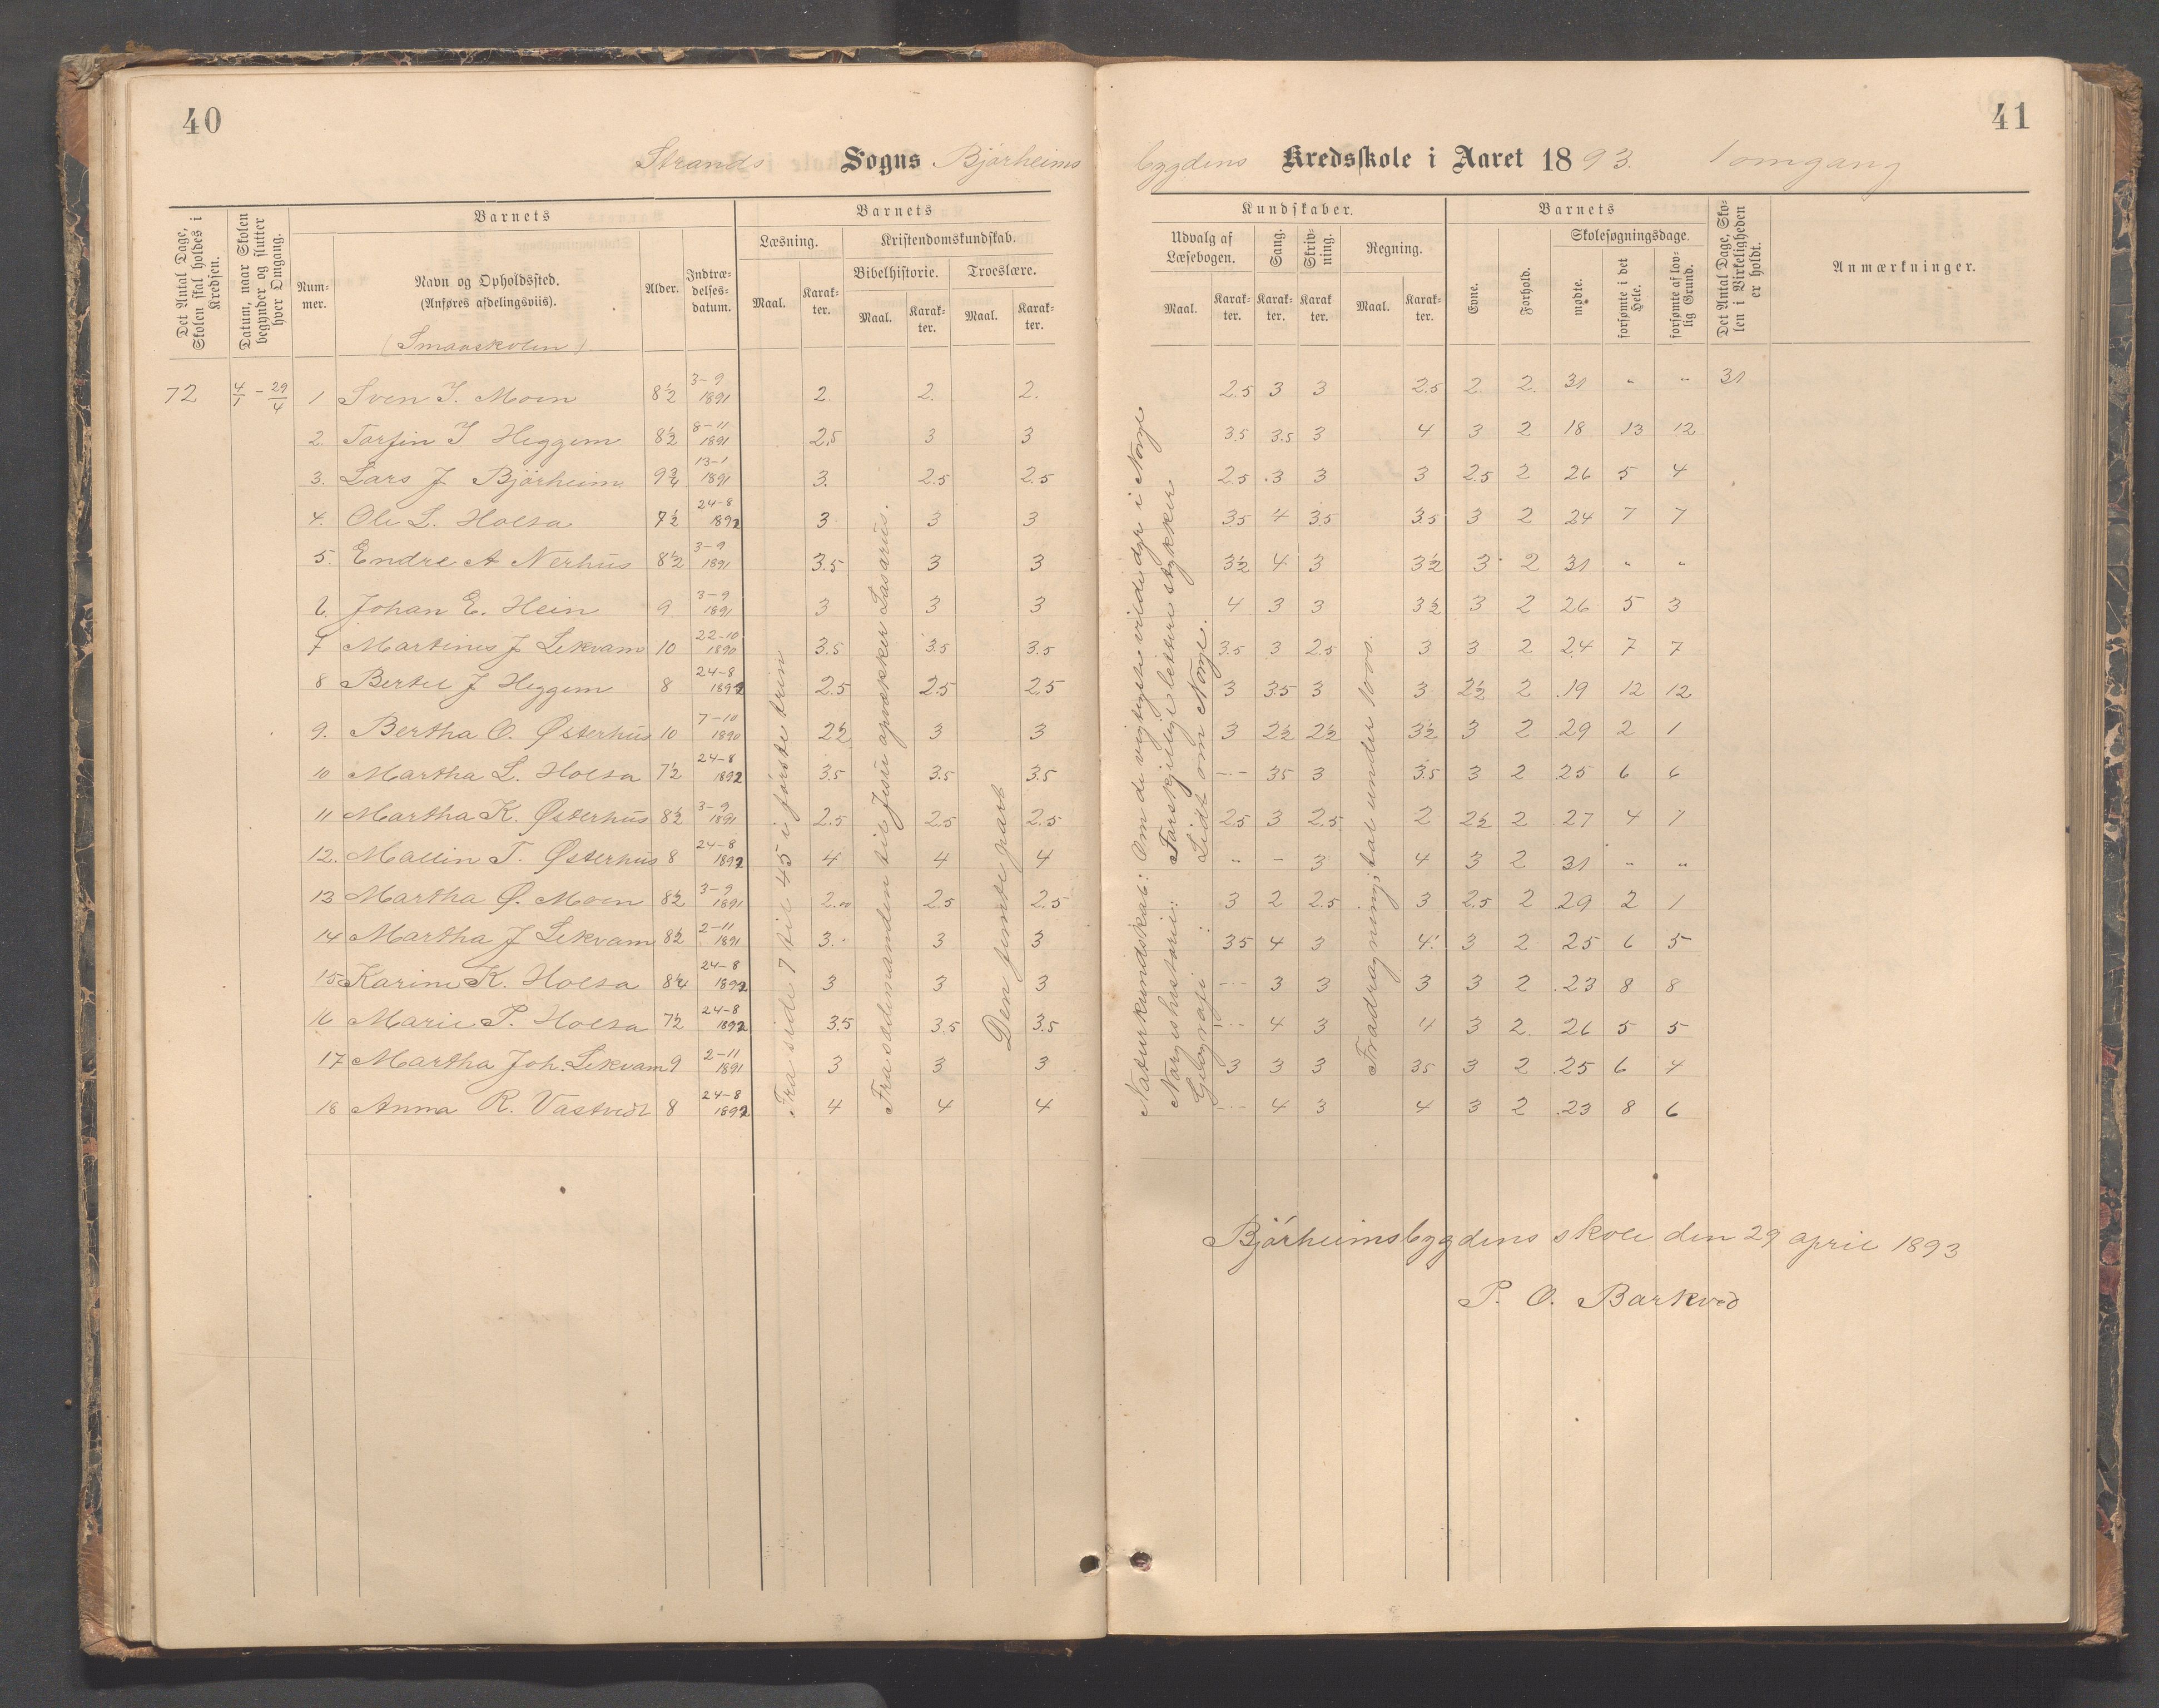 40
Strands Sogns Bjørheims
Det Antal Dage, Skolen skal holdes i Kredsen.
Datum, naar Skolen begynder og slutter hver Omgang.
Barnets
Nummer.
Navn og Opholdssted. (Anføres afdelingsviis).
(Smaaskolen)
Alder.
Indtrædelsesdatum.
Barnets
Læsning.
Maal. Karakter.
Kristendomskundskab.
Bibelhistorie. Troeslære.
Maal. Karakter. Maal. Karakter.
72 4/1 - 29/4 1 Sven T. Moen 8½ 3-9 1891 2. 2. 2.
2. Torfin T Heggem 8½ 8-11 1891 2.5 3 3
3. Lars J Bjørheim 9¾ 13-1 1891 3. 2.5 2.5
4. Ole L. Holta 7½ 24-8 1892 3 3 3
5. Endre A Nerhus 8½ 3-9 1891 3.5 3 3
6 Johan E. Hein 9 3-9 1891 3 3 3
7 Martines J Lekvam 10 22-10 1890 3.5 3.5 3.5
8 Bertel J Heggem 8 24-8 1892 2.5 2.5 2.5
9. Bertha O. Østerhus 10 7-10 1890 2½ 3 3
10 Martha L. Holta 7½ 24-8 1892 3.5 3.5 3.5
11 Martha K. Østerhus 8½ 3-9 1891 2.5 2.5 2.5
12. Mallin T. Østerhus 8 24-8 1892 4 4 4
13 Martha Ø. Moen 8½ 3-9 1891 2.00 2.5 2.5
14 Martha J Lekvam 8½ 2-11 1891 3. 3 3
15 Karine K. Holta 8¼ 24-8 1892 3 3 3
16 Marie P. Holta 7½ 24-8 1892 3.5 3.5 3.5
17 Martha Joh. Lekvam 9 2-11 1891 3 3 3
18 Anna R. Vastvedt 8 24-8 1892 4 4 4
Fra side 7 til 45 i første trin
Fra sædemanden til Jesu opvækker Lasarus.
Den femte part
41
bygdens Kredsskole i Aaret 1893. 1 omgang
Kundskaber.
Udvalg af Læsebogen.
Maal. Karakter.
Sang.
Karakter.
Skrivning.
Karakter.
Regning.
Maal. Karakter.
Barnets
Evne.
Forhold.
Skolesøgningsdage.
mødte.
forsømte i det Hele.
forsømte af lovlig Grund.
Det Antal Dage, Skolen i Virkeligheden er holdt.
Anmærkninger.
2.5 3 3 2.5 2. 2. 31 " " 31
3.5 3.5 3 4 3 2 18 13 12
2.5 3 3 3 2.5 2 26 5 4
3.5 4 3.5 3.5 3 2 24 7 7
3½ 4 3 3½ 3 2 31 " "
4 3 3 3½ 3 2 26 5 3
3.5 3 2.5 3 3 2 24 7 7
3 3.5 3 3 2½ 2 19 12 12
3 2½ 2½ 3½ 3 2 29 2 1
- - - 3.5 3 3.5 3 2 25 6 6
2.5 3 2.5 2 2½ 2 27 4 1
- - 3 4 3 2 31 " "
3 2 2.5 3 2.5 2 29 2 1
3.5 4 3 4. 3 2 25 6 5
- - - 3 3 3 3 2 23 8 8
- - - 4 3 4 3 2. 26 5 5
3 3 3 3.5 3 2 25 6 4
- - - 4 3 4 3 2 23 8 6
Naturkundskab: Om de vigtigste vilde dyr i Norge
Norgeshistorie: Forskjellige lettere stykker
Geografi: Lidt om Norge.
Fradragning; tal under 1000.
Bjørheimsbygdens skole den 29 april 1893
P. O. Barkved